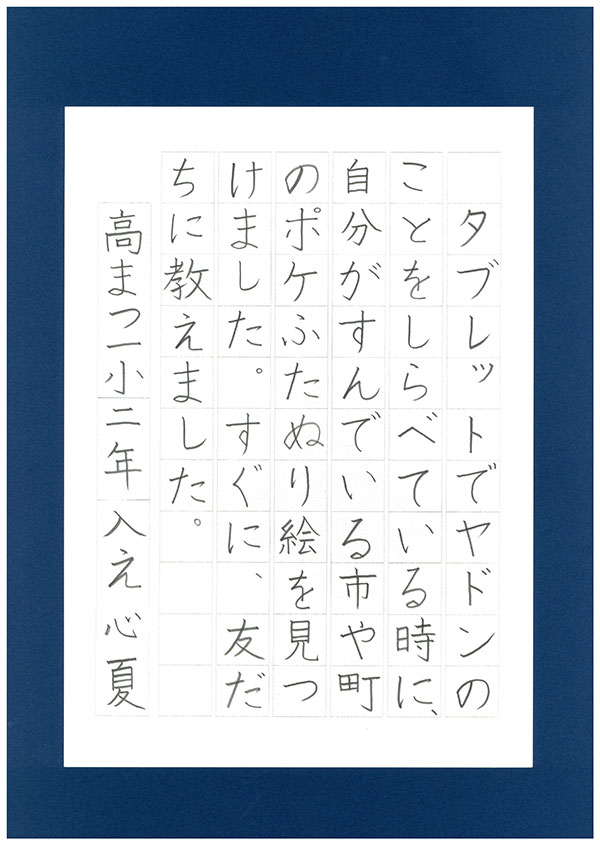 タブレットでヤドンの
ことをしらべている時に、
自分がすんでいる市や町
のポケふたぬり絵を見つ
けました。すぐに、友だ
ちに教えました。
高まつ一小二年入え心夏